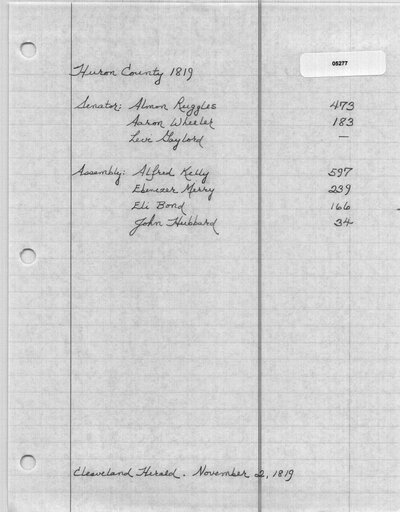 05277
Huron County 1819
Senator: Almon Ruggles 473
Aaron Wheeler 183
Levi Gaylord —
Assembly: Alfred Kelly 597
Ebenezer Merry 239
Eli Bond 166
John Hubbard 34
Cleaveland Herald. November 2, 1819